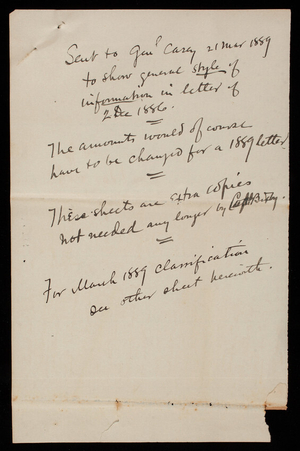 Sent to Genl Casey 21 Mar 1889
to show general style of
information in letter of
2 Dec 1886.
The amounts would of course
have to be changed for a 1889 letter
These sheets are extra copies
not needed any longer by Capt Bixby.
For March 1889 classification
see other sheet herewith.